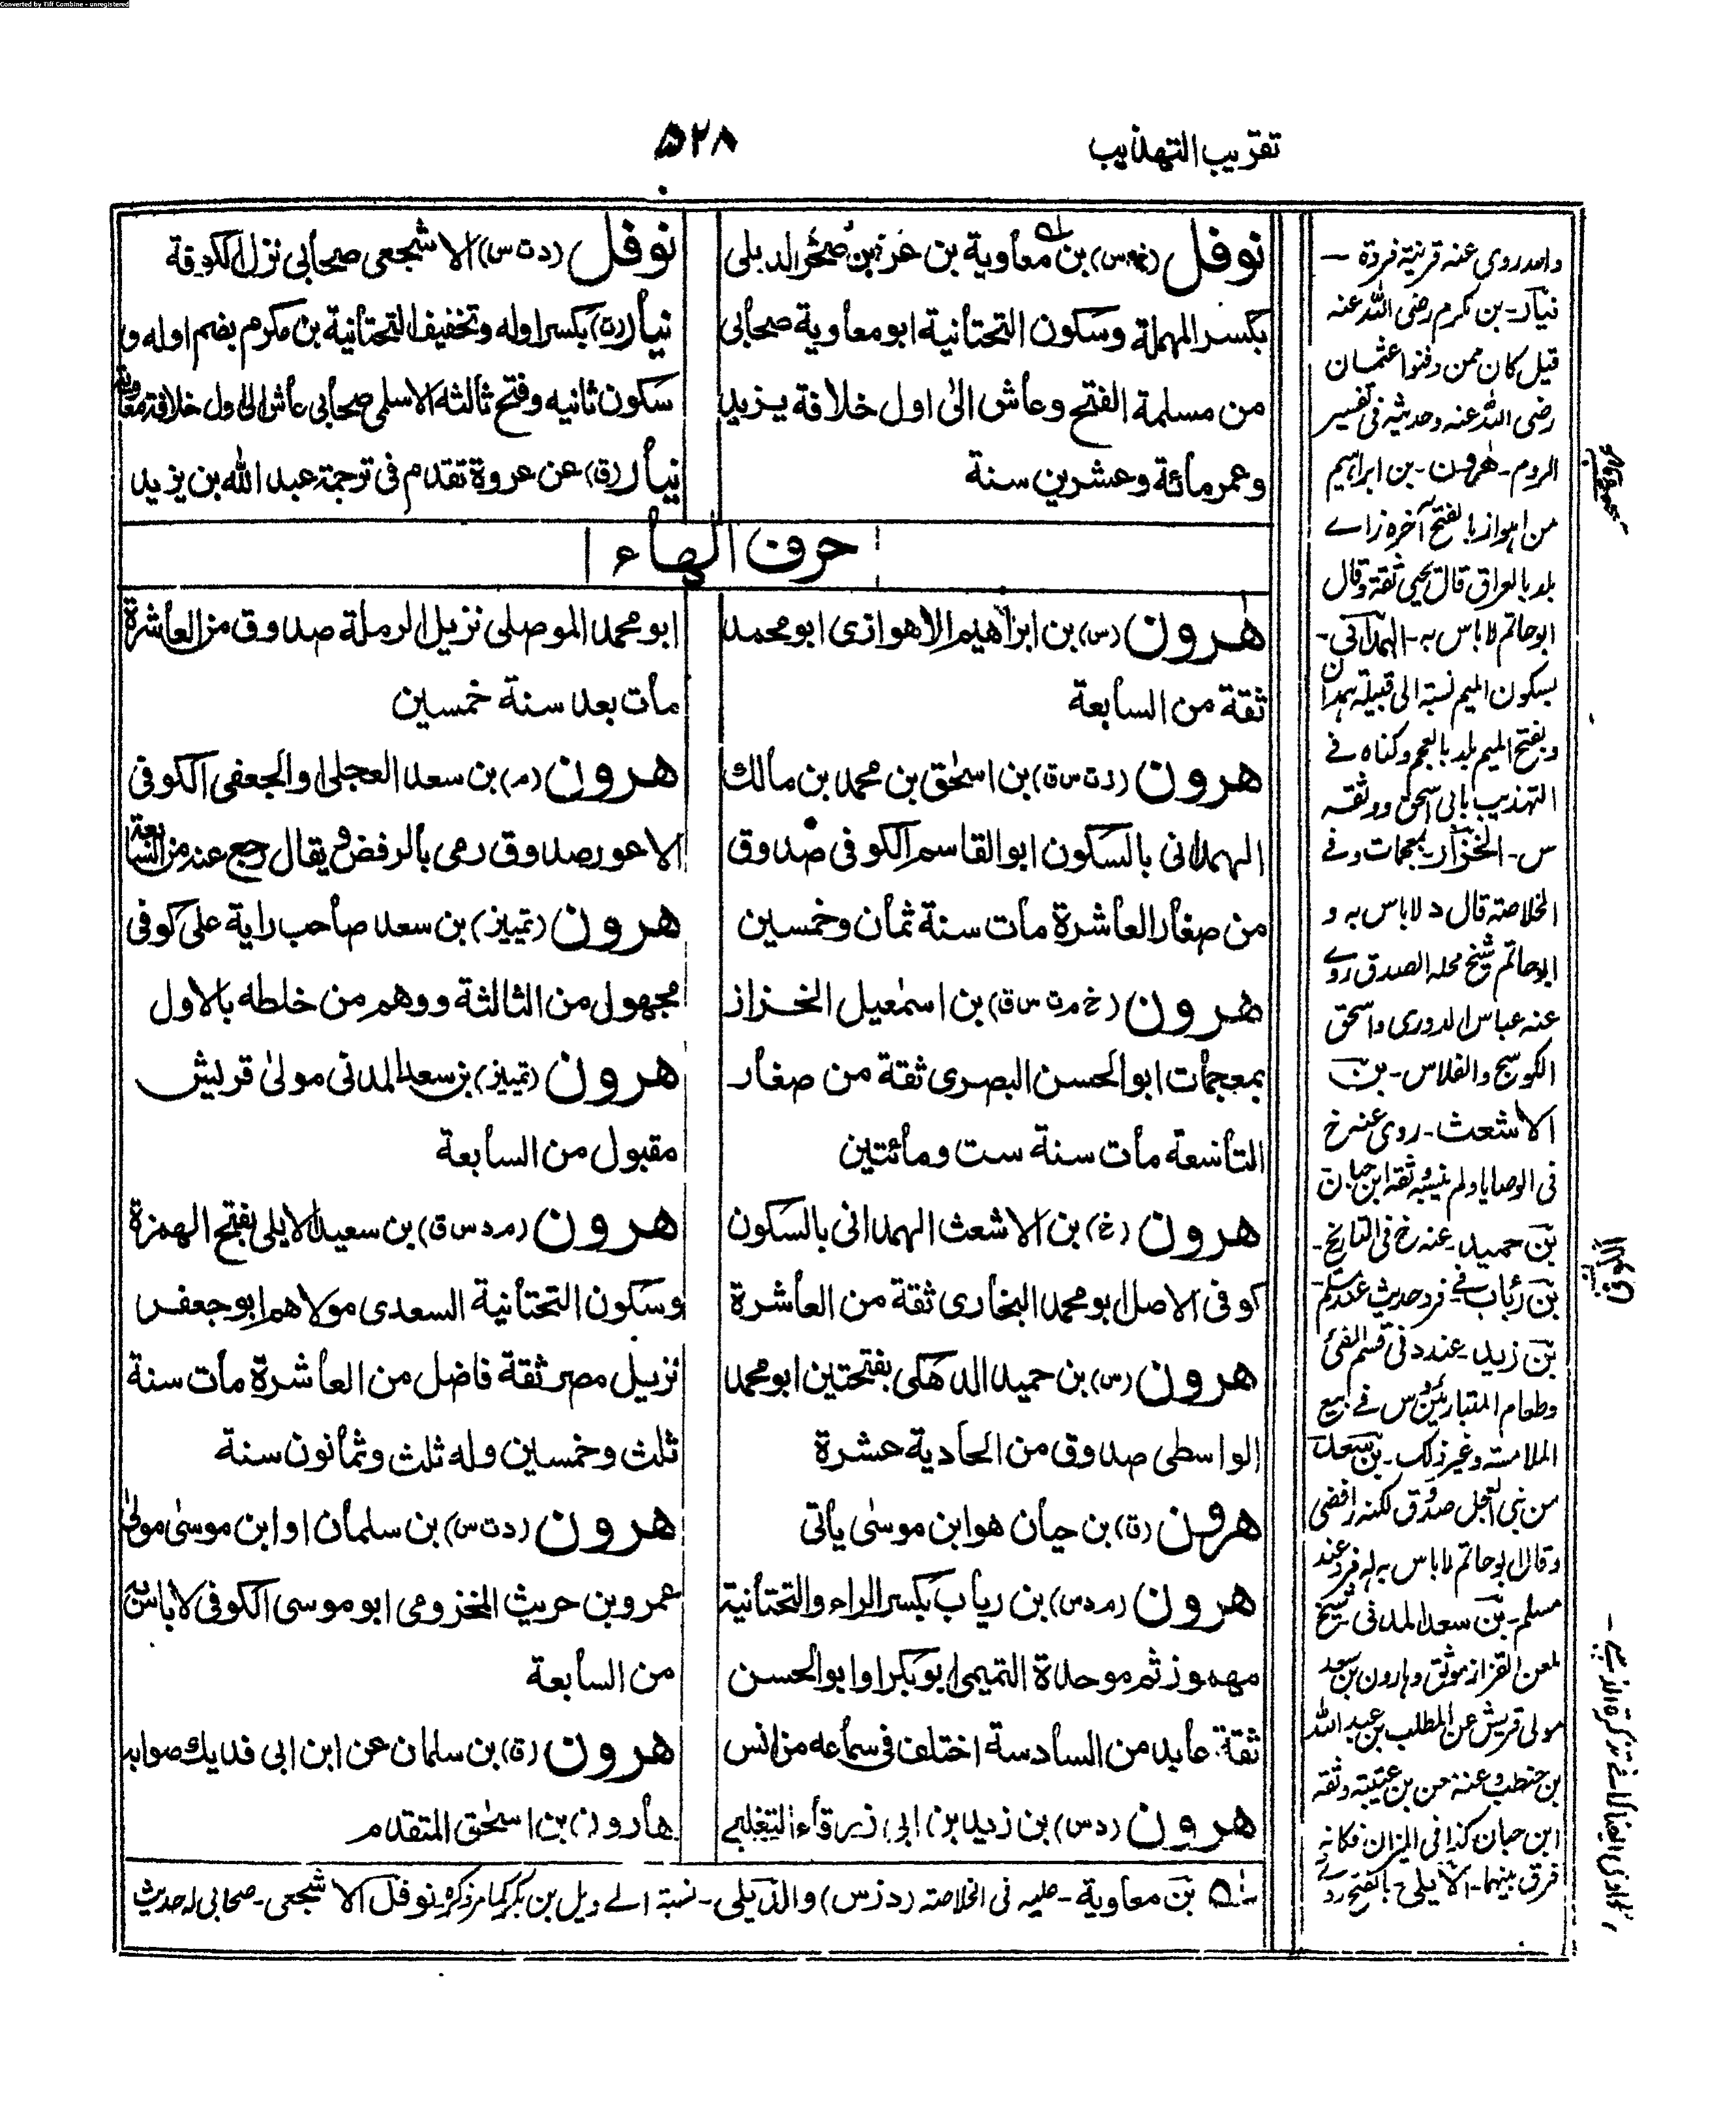 Converted by Tiff Combine - unregistered
تقريب التهذيب
۵۲۸
نوفل (خ م س) بن معاوية بن عروة بن صخر الديلى
بكسر المهملة وسكون التحتانية ابو معاوية صحابى
من مسلمة الفتح وعاش الى اول خلافة يزيد
وعمر مائة وعشرين سنة
نوفل (د ت س) الاشجعى صحابى نزل الكوفة
نيار (ت) بكسر اوله وتخفيف التحتانية بن مكرم بضم اوله و
سكون ثانيه وفتح ثالثه الاسلمى صحابى عاش الى اول خلافة معاوية
نيار (ق) عن عروة تقدم فى ترجمة عبد الله بن يزيد
حرف الهاء
هرون (س) بن ابراهيم الاهوازى ابو محمد
ثقة من السابعة
هرون (ر ت س ق) بن اسحٰق بن محمد بن مالك
الهمدانى بالسكون ابو القاسم الكوفى صدوق
من صغار العاشرة مات سنة ثمان وخمسين
هرون (خ م ت س ق) بن اسمٰعيل الخزاز
بمعجمات ابو الحسن البصرى ثقة من صغار
التاسعة مات سنة ست ومائتين
هرون (خ) بن الاشعث الهمدانى بالسكون
كوفى الاصل ابو محمد البخارى ثقة من العاشرة
هرون (س) بن حميد الدهكى بفتحتين ابو محمد
الواسطى صدوق من الحادية عشرة
هرون (ق) بن حيان هو ابن موسىٰ ياتى
هرون (م د س) بن رياب بكسر الراء والتحتانية
مهموز ثم موحدة التميمى ابو بكر او ابو الحسن
ثقة عابد من السادسة اختلف فى سماعه من انس
هرون (د س) بن زيد بن ابى زرقاء التغلبى
ابو محمد الموصلى نزيل الرملة صدوق من العاشرة
مات بعد سنة خمسين
هرون (م) بن سعد العجلى او الجعفى الكوفى
الاعور صدوق رمى بالرفض ويقال رجع عنه من السابعة
هرون (تمييز) بن سعد صاحب راية على كوفى
مجهول من الثالثة ووهم من خلطه بالاول
هرون (تمييز) بن سعد المدنى مولىٰ قريش
مقبول من السابعة
هرون (م د س ق) بن سعيد الايلى بفتح الهمزة
وسكون التحتانية السعدى مولاهم ابو جعفر
نزيل مصر ثقة فاضل من العاشرة مات سنة
ثلث وخمسين وله ثلث وثمانون سنة
هرون (د ت س) بن سلمان او ابن موسىٰ مولىٰ
عمرو بن حريث المخزومى ابو موسى الكوفى لا باس به
من السابعة
هرون (ق) بن سلمان عن ابن ابى فديك صوابه
هارون بن اسحٰق المتقدم
بن معاوية - عليه فى الخلاصة (د ز س) والديلى - نسبة الے ديل بن بكر كما مر ذكره نوفل الاشجعى - صحابى له حديث
واحد روى عنه قرنية فروة -
نيار - بن مكرم رضى الله عنه
قيل كان ممن دفنوا عثمان
رضى الله عنه وحديثه فى تفسير
الروم - هرون - بن ابراهيم
من اهواز بالفتح آخره زاے
بلد بالعراق قال يحيى ثقة وقال
ابو حاتم لا باس به - الهمدانى -
بسكون الميم نسبة الى قبيلة همدان
وبفتح الميم بلد بالعجم وكناه فے
التهذيب بابى اسحق ووثقه
س - الخزاز - بمعجمات وفے
الخلاصة قال د لا باس به و
ابو حاتم شيخ محله الصدق روے
عنه عباس الدورى واسحق
الكوسج والفلاس - بن
الاشعث - روى عنه خ
فى الوصايا ولم ينسبه ثقة ابن حبان
بن حميد - عنه خ فى التاريخ -
بن رئاب - فے فرد حديث عند مسلم
بن زيد - عند د فى قسم الفئ
وطعام المتباريين وس فے بيع
الملامسة وغير ذلك - بن سعد
من بنى العجل صدوق لكنه رافضى
وقال ابو حاتم لا باس به له فرد عند
مسلم - بن سعد المدنى شيخ
لمعن القزاز موثق وهارون بن سعد
مولى قريش عن المطلب بن عبد الله
بن حنطب وعنه معن بن عيينة وثقه
ابن حبان كذا فى الميزان فكانه
فرق بينهما - الايلى - بالفتح روے